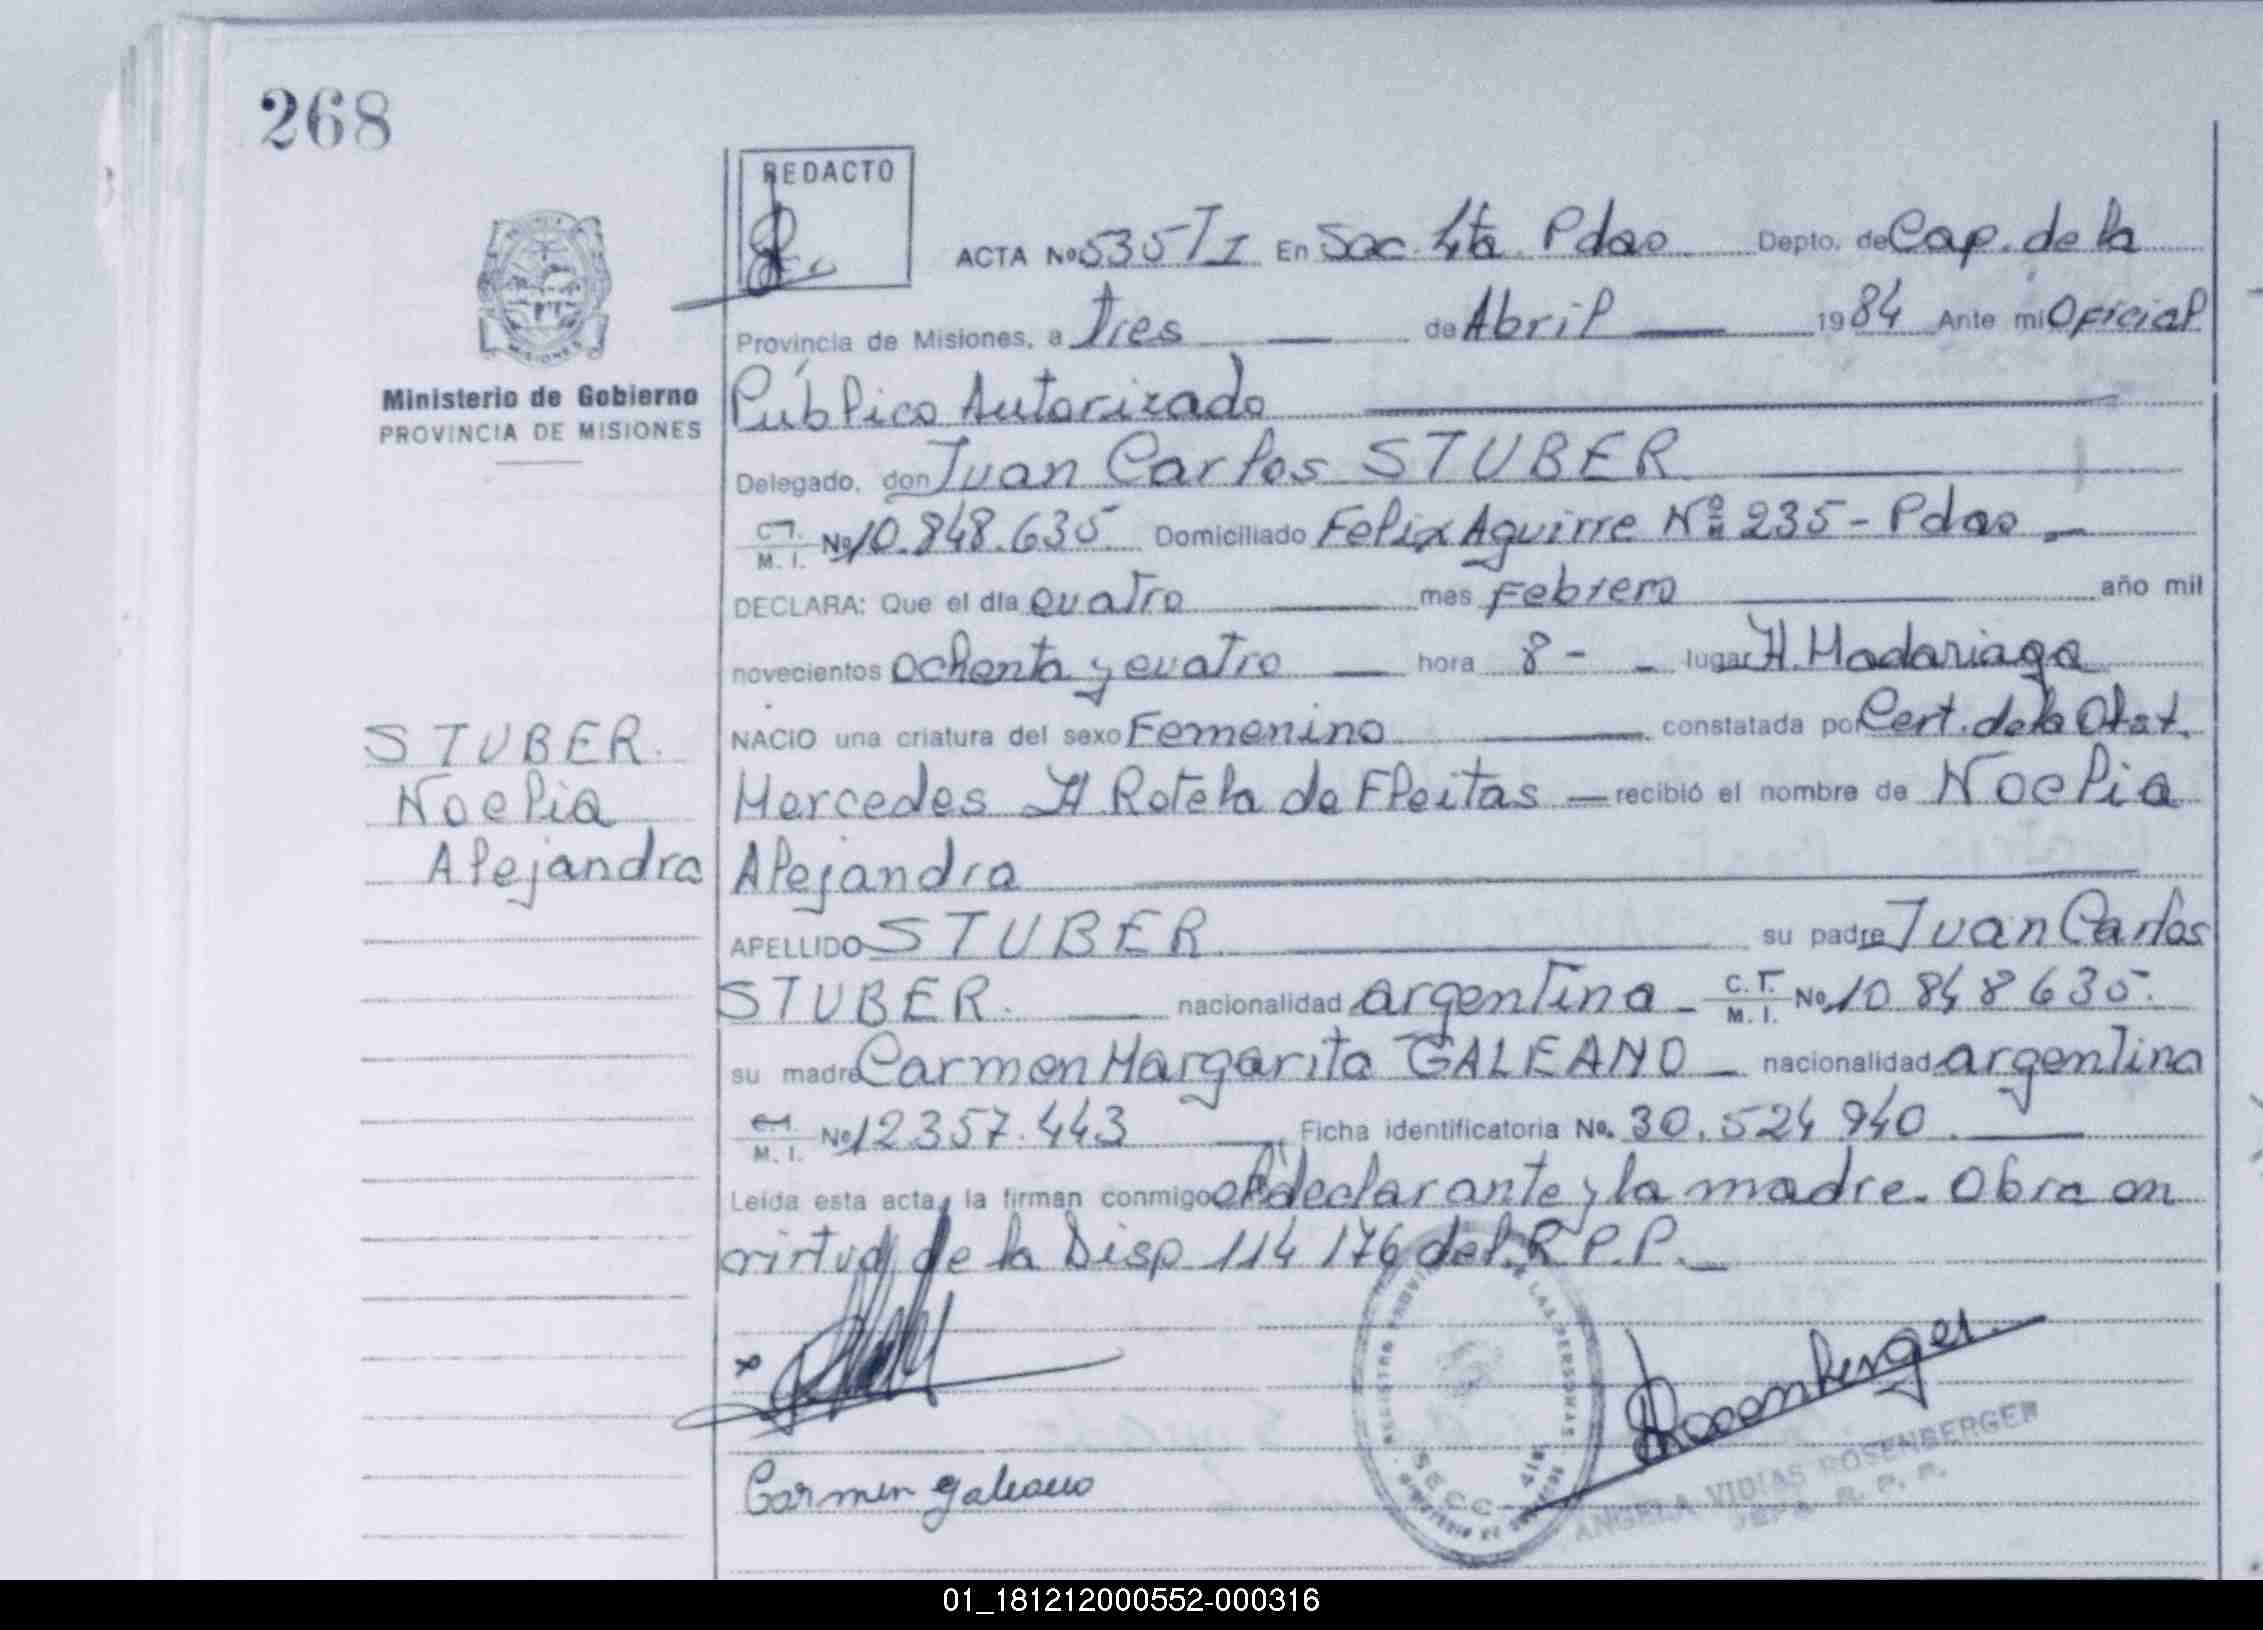 268
REDACTO
ACTA Nº 535 T I En Sac. 4ta. Pdas Depto. de Cap. de la
Provincia de Misiones, a tres de Abril 1984 Ante mi Oficial
Público Autorizado
Ministerio de Gobierno
PROVINCIA DE MISIONES
Delegado, don Juan Carlos STUBER
C.I. M. I. Nº 10.848.635 Domiciliado Felix Aguirre Nº 235 - Pdas
DECLARA: Que el día cuatro mes Febrero año mil
novecientos ochenta y cuatro hora 8 - lugar H. Madariaga
NACIO una criatura del sexo Femenino constatada por Cert. de la Obst.
Mercedes H Rotela de Fleitas recibió el nombre de Noelia
Alejandra
STUBER.
Noelia
Alejandra
APELLIDO STUBER su padre Juan Carlos
STUBER. nacionalidad argentina C.I. M. I. Nº 10 848 635.
su madre Carmen Margarita GALEANO nacionalidad argentina
C.I. M. I. Nº 12.357.443 Ficha identificatoria No. 30.524 940
Leída esta acta, la firman conmigo el declarante y la madre. Obra en
virtud de la Disp 114 176 del R.P.P.
REGISTRO LAS PERSONAS
SECC. 4ta
Rosenberger
ANGELA VIDIAS ROSENBERGER
JEFA R. P. P.
Carmen Galeano
01_181212000552-000316